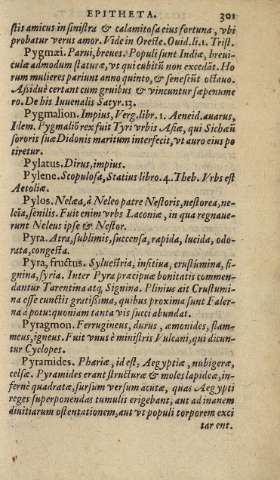 EPITHETA. 301
stis amicus in sinistra & calamitosa eius fortuna, vbi
probatur verus amor. Vide in Oreste. Ouid. li. 1. Trist.
Pygmæi. Parui, breues. Populi sunt Indiæ, breui-
culæ admodum staturæ, vt qui cubitū non excedāt. Ho
rum mulieres pariunt anno quinto, & senescūt octauo.
Assiduè certant cum gruibus & vincuntur sæpenume
ro. De his Iuuenalis Satyr. 13.
Pygmalion. Impius, Verg. libr. 1. Aeneid. auarus,
Idem. Pygmaliō rex fuit Tyri vrbis Asiæ, qui Sichæū
sororis suæ Didonis maritum interfecit, vt auro eius po
tiretur.
Pylatus. Dirus, impius.
Pylene. Scopulosa, Statius libro. 4. Theb. Vrbs est
Aetoliæ.
Pylos. Nelæa, à Neleo patre Nestoris, nestorea, ne-
leïa, senilis. Fuit enim vrbs Laconiæ, in qua regnaue-
runt Neleus ipse & Nestor.
Pyra. Atra, sublimis, succensa, rapida, lucida, odo-
rata, congesta.
Pyra, fructus. Syluestria, insitiua, crustumina, si-
gnina, syria. Inter Pyra præcipuæ bonitatis commen-
dantur Tarentina atq; Signina. Plinius ait Crustumi-
na esse cunctis gratissima, quibus proxima sunt Faler-
na à potu: quoniam tanta vis succi abundat.
Pyragmon. Ferrugineus, durus, æmonides, flam-
meus, igneus. Fuit vnus è ministris Vulcani, qui dicun-
tur Cyclopes.
Pyramides. Phariæ, id est, Aegyptiæ, nubigeræ,
celsæ. Pyramides erant structuræ & moles lapideæ, in-
fernè quadratæ, sursum versum acutæ, quas Aegypti
reges superponendas tumulis erigebant, aut ad inanem
diuitiarum ostentationem, aut vt populi torporem exci
tarent.